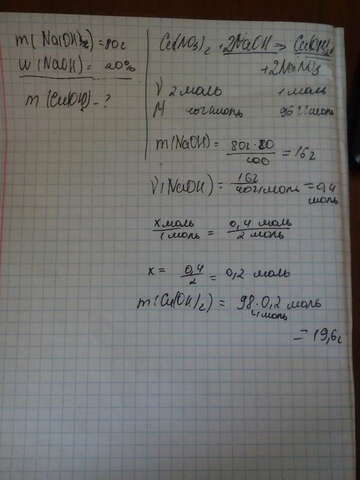 m(Na(OH)2)=80г
W(NaOH)=20%
m(Cu(OH)2-?
Cu(NO3)2+2NaOH=>Cu(OH)2
+2NaNO3
ν 2 моль 1 моль
M 40г/моль 98 г/моль
m(NaOH)=80г·20/100=16г
ν(NaOH)=16г/40г/моль=0,4
моль
x моль/1 моль=0,4 моль/2 моль
x=0,4/2=0,2 моль
m(Cu(OH)2)=98·0,2 моль
г/моль
=19,6г